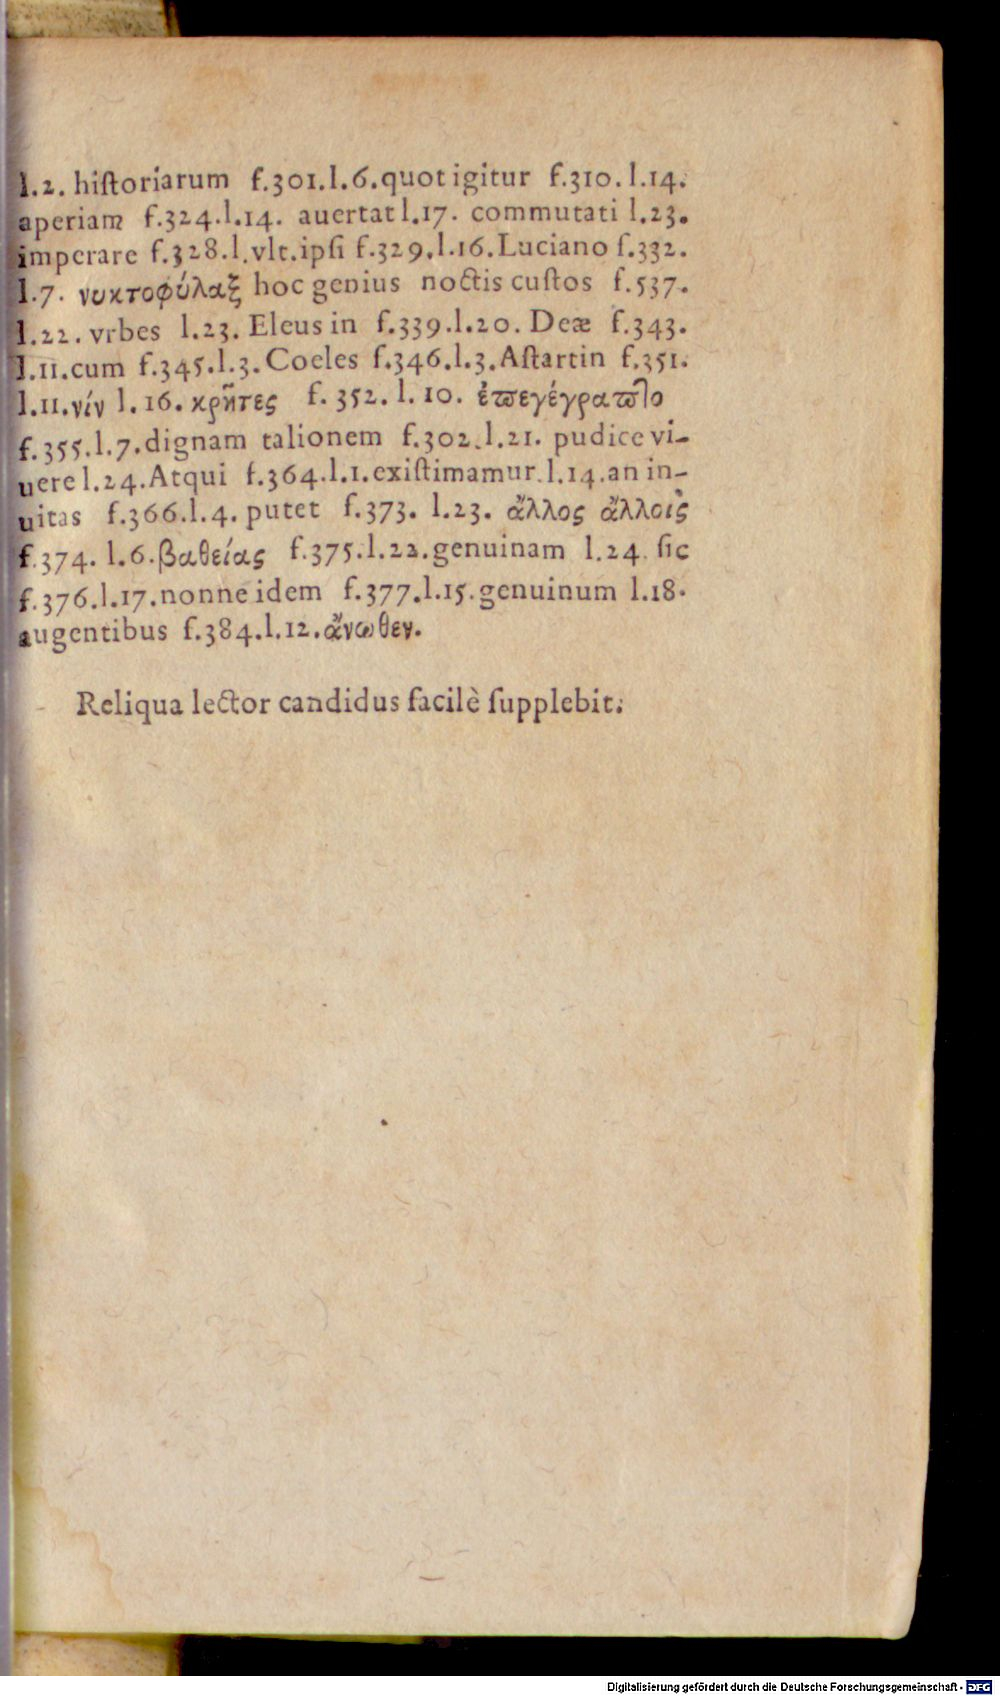 l.2. hiſtoriarum f.301.l.6.quot igitur f.310.l.14.
aperiam f.324.l.14. auertat l.17. commutati l.23.
imperare f.328.l.vlt.ipſi f.329.l.16.Luciano f.332.
l.7. νυκτοφύλαξ hoc genius noctis cuſtos f.537.
l.22. vrbes l.23. Eleus in f.339.l.20. Deæ f.343.
l.11.cum f.345.l.3.Coeles f.346.l.3.Aſtartin f.351.
l.11.νίν l.16.κρῆτες f.352.l.10. ἐπεγέγραπτο
f.355.l.7.dignam talionem f.302.l.21. pudice vi-
uere l.24.Atqui f.364.l.1.exiſtimamur.l.14.an in-
uitas f.366.l.4. putet f.373. l.23. ἄλλος ἄλλοις
f.374. l.6.βαθείας f.375.l.22.genuinam l.24. ſic
f.376.l.17.nonne idem f.377.l.15.genuinum l.18.
augentibus f.384.l.12.ἄνωθεν.
Reliqua lector candidus facilè ſupplebit.
Digitalisierung gefördert durch die Deutsche Forschungsgemeinschaft - DFG